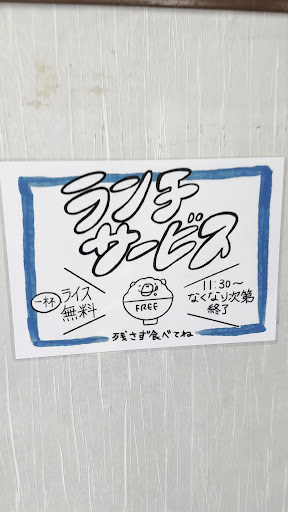 ランチ
サービス
一杯
ライス
無料
FREE
11:30〜
なくなり次第
終了
残さず食べてね